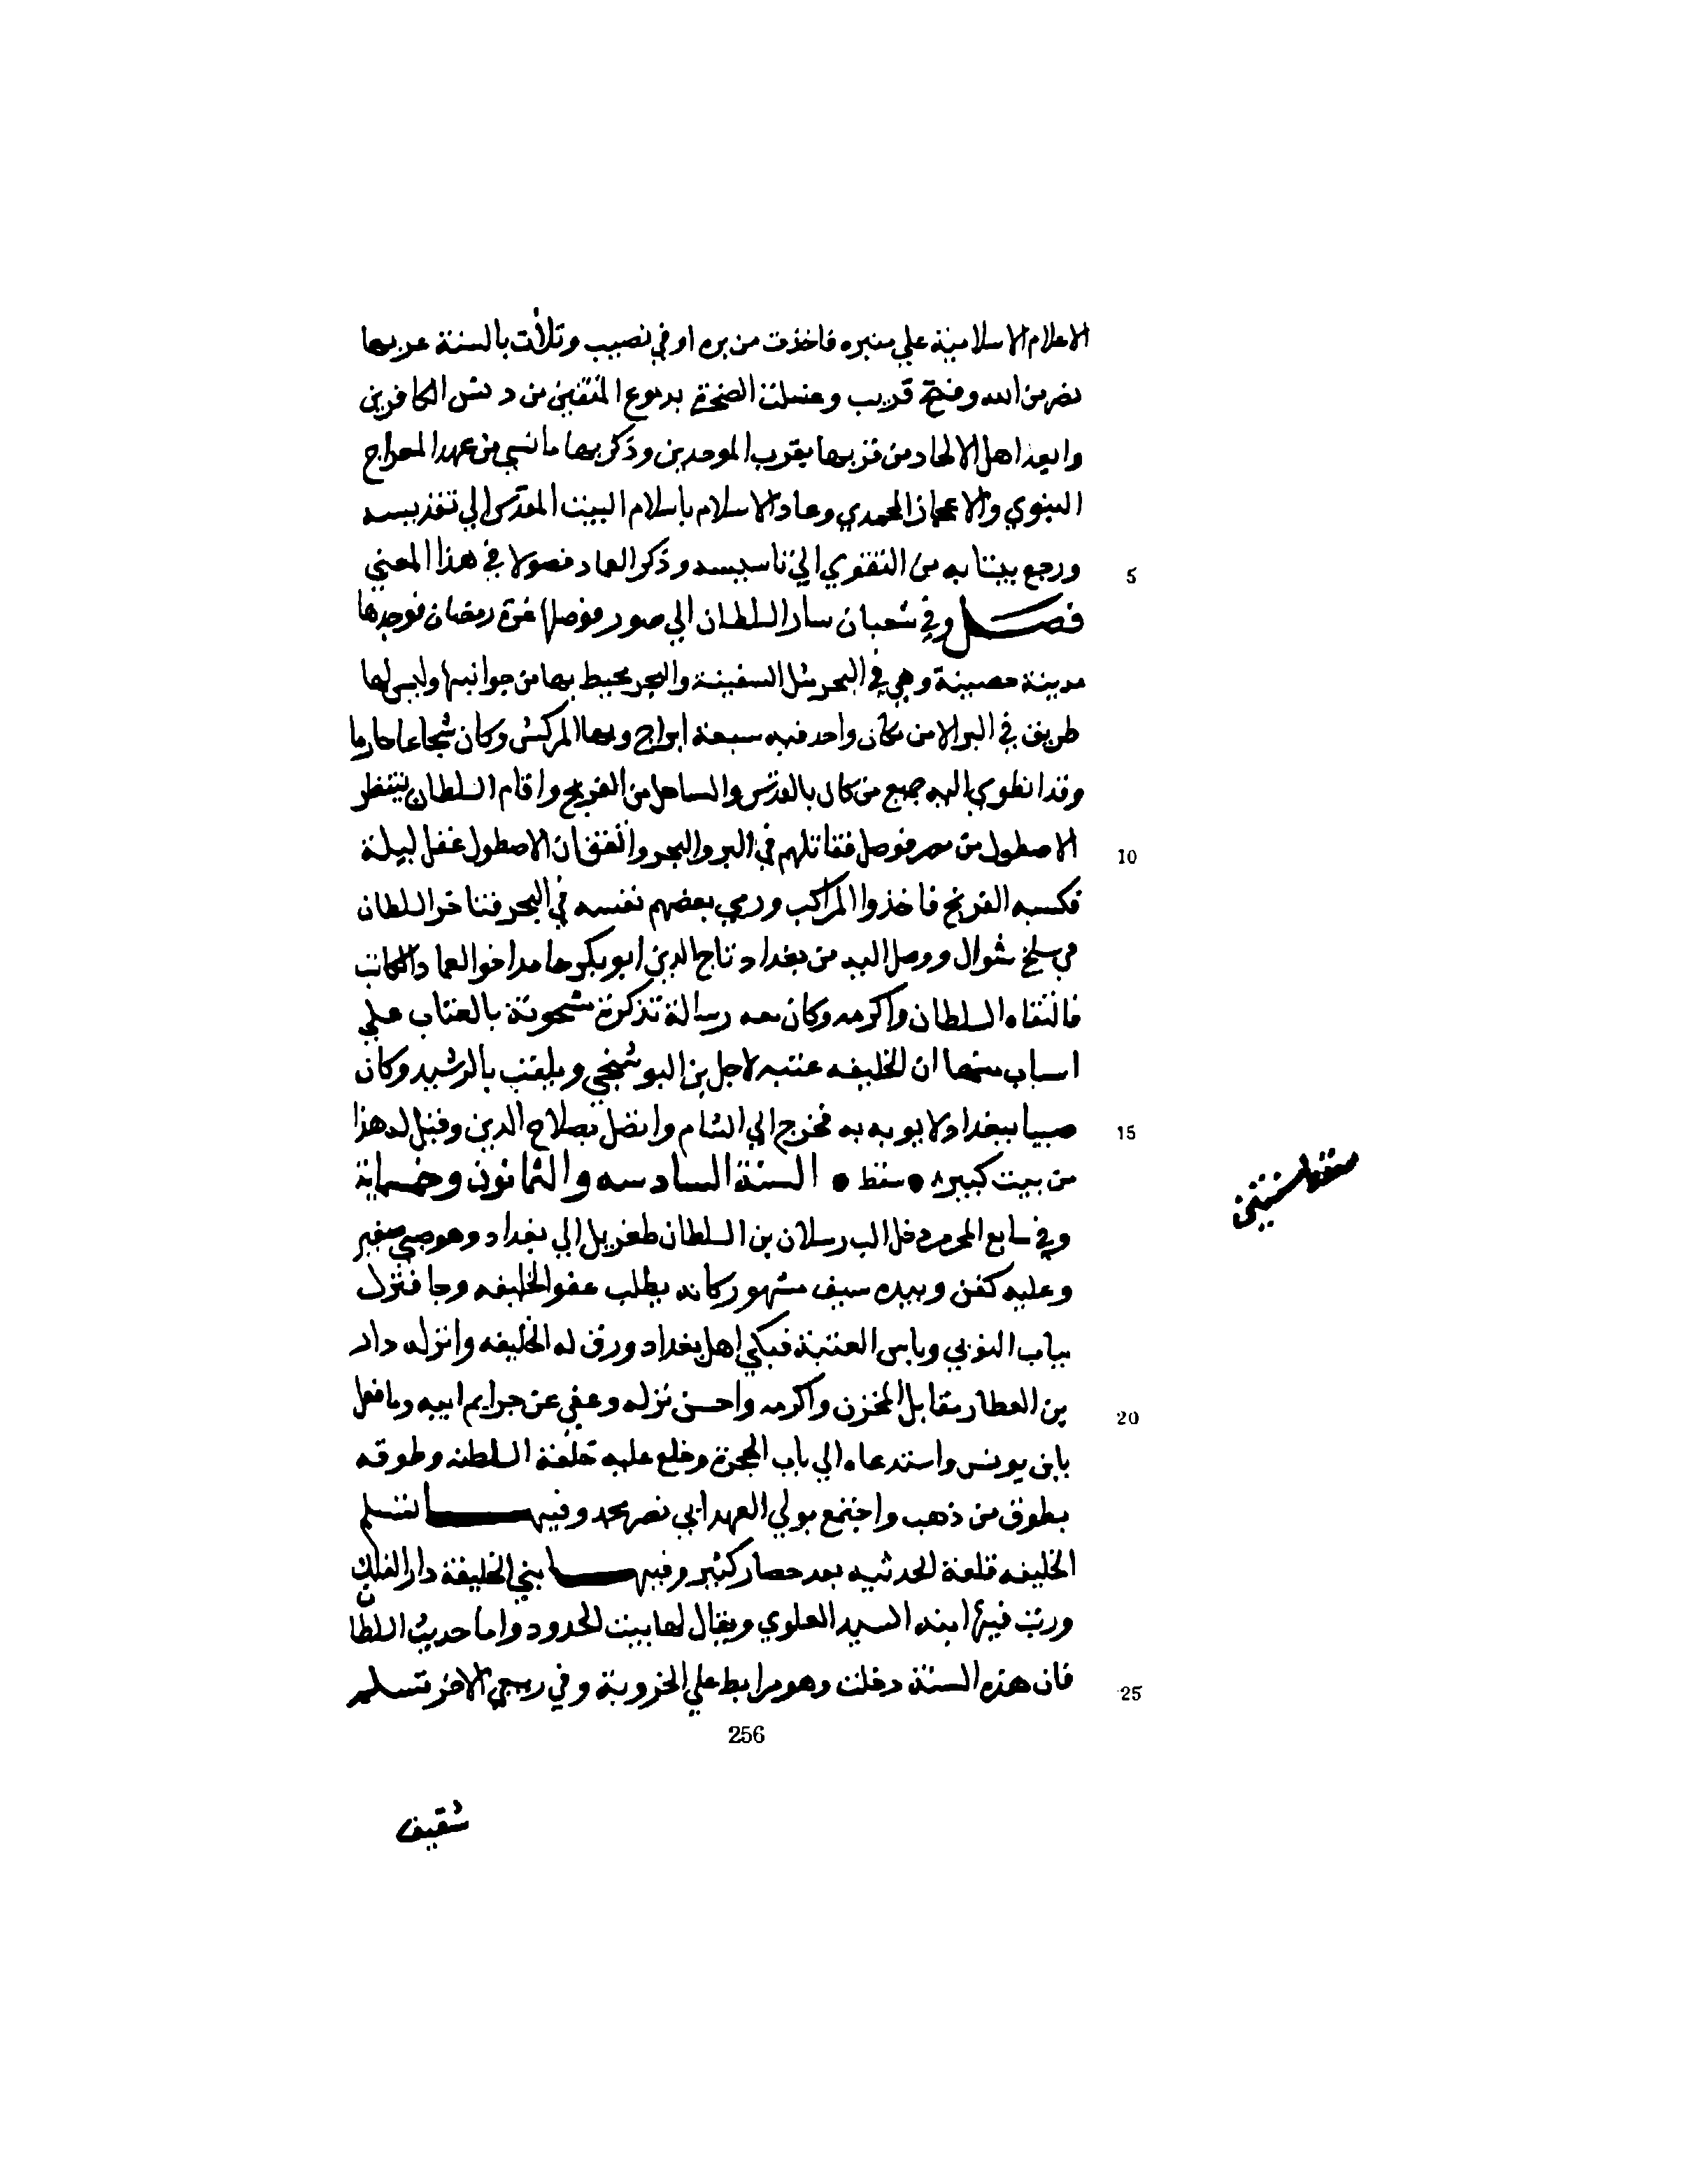 الاعلام الاسلامية علي منبره فاخذت من بره اوفي نصيب وتلات بالسنة عزبها
نصر من الله وفتح قريب وغسلت الصخرة بدموع المتقين من دنس الكافرين
وابعد اهل الالحاد من قربها بقرب الموحدين وذكر بها ما نسي من عهد المعراج
النبوي والاعجاز المحمدي وعاد الاسلام باسلام البيت المقدس الي تقديسه
ورجع بنيانه من التقوي الي تاسيسه وذكر العماد فصولا في هذا المعني
5
فصل وفي شعبان سار السلطان الي صور فوصلها غرة رمضان فوجدها
مدينة حصينة وهي في البحر مثل السفينة والبحر محيط بها من جوانبها وليس لها
طريق في البر الا من مكان واحد فيه سبعة ابراج وبها المركيش وكان شجاعا حازما
وقد انطوي اليه جميع من كان بالقدس والساحل من الفرنج واقام السلطان ينتظر
الاصطول من مصر فوصل فقاتلهم في البر والبحر واتفق ان الاصطول غفل ليلة
10
فكبسه الفرنج فاخذوا المراكب ورمي بعضهم نفسه في البحر فتاخر السلطان
في سلخ شوال ووصل اليه من بغداد تاج الدين ابو بكر حامد اخو العماد الكاتب
فالتقاه السلطان واكرمه وكان معه رسالة تذكرة مشحونة بالعتاب علي
اسباب منها ان الخليفه عتبه لاجل بن البوشنجي ويلقب بالرشيد وكان
صبيا ببغداد لا يوبه به فخرج الي الشام واتصل بصلاح الدين وقيل له هذا
15
من بيت كبير ه سقط ه السنة السادسه والثمانون وخمسماية
سقط سنتين
وفي سابع المحرم دخل الب رسلان بن السلطان طغريل الي بغداد وهو صبي صغير
وعليه كفن وبيده سيف مشهور كانه يطلب عفو الخليفه وجا فنزل
بباب النوبي وباس العتبة فبكي اهل بغداد ورق له الخليفه وانزله دار
بن العطار مقابل المخزن واكرمه واحسن نزله وعفي عن جرايم ابيه وما فعل
20
بابن يونس واستدعاه الي باب الحجرة وخلع عليه خلعة السلطنه وطوقه
بطوق من ذهب واجتمع بولي العهد ابي نصر محمد وفيها تسلم
الخليفه قلعة الحديثه بعد حصار كثير وفيها بني الخليفة دار الفلك
ورتب فيها ابنه السيد العلوي ويقال لها بيت الحدود واما حديث السلطان
فان هذه السنة دخلت وهو مرابط علي الخروبة وفي ربيع الاخر تسلم
25
256
شقيف